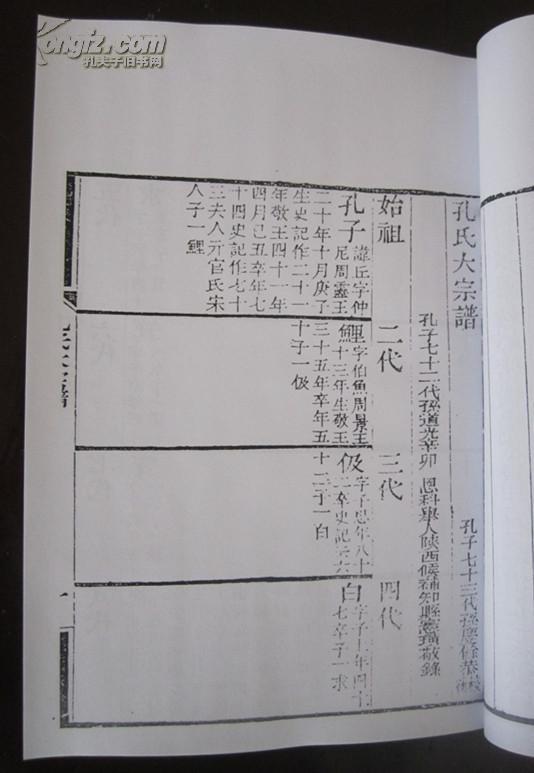 kongfz.com
孔夫子旧书网
孔氏大宗譜
孔子七十三代孫慶
孔子七十二代孫道光辛卯 恩科舉人陝西候補知縣憲璜敬錄
始祖 二代 三代 四代
孔子 諱丘字仲
尼周靈王
二十年十月庚子
生史記作二十一
年敬王四十一年
四月己丑卒年七
十四史記作七十
三夫人亓官氏宋
人子一鯉
鯉 字伯魚周景王
十三年生敬王
三十五年卒年五
十子一伋
伋 字子思年八十
二卒史記云六
十二子一白
白 字子上年四十
七卒子一求